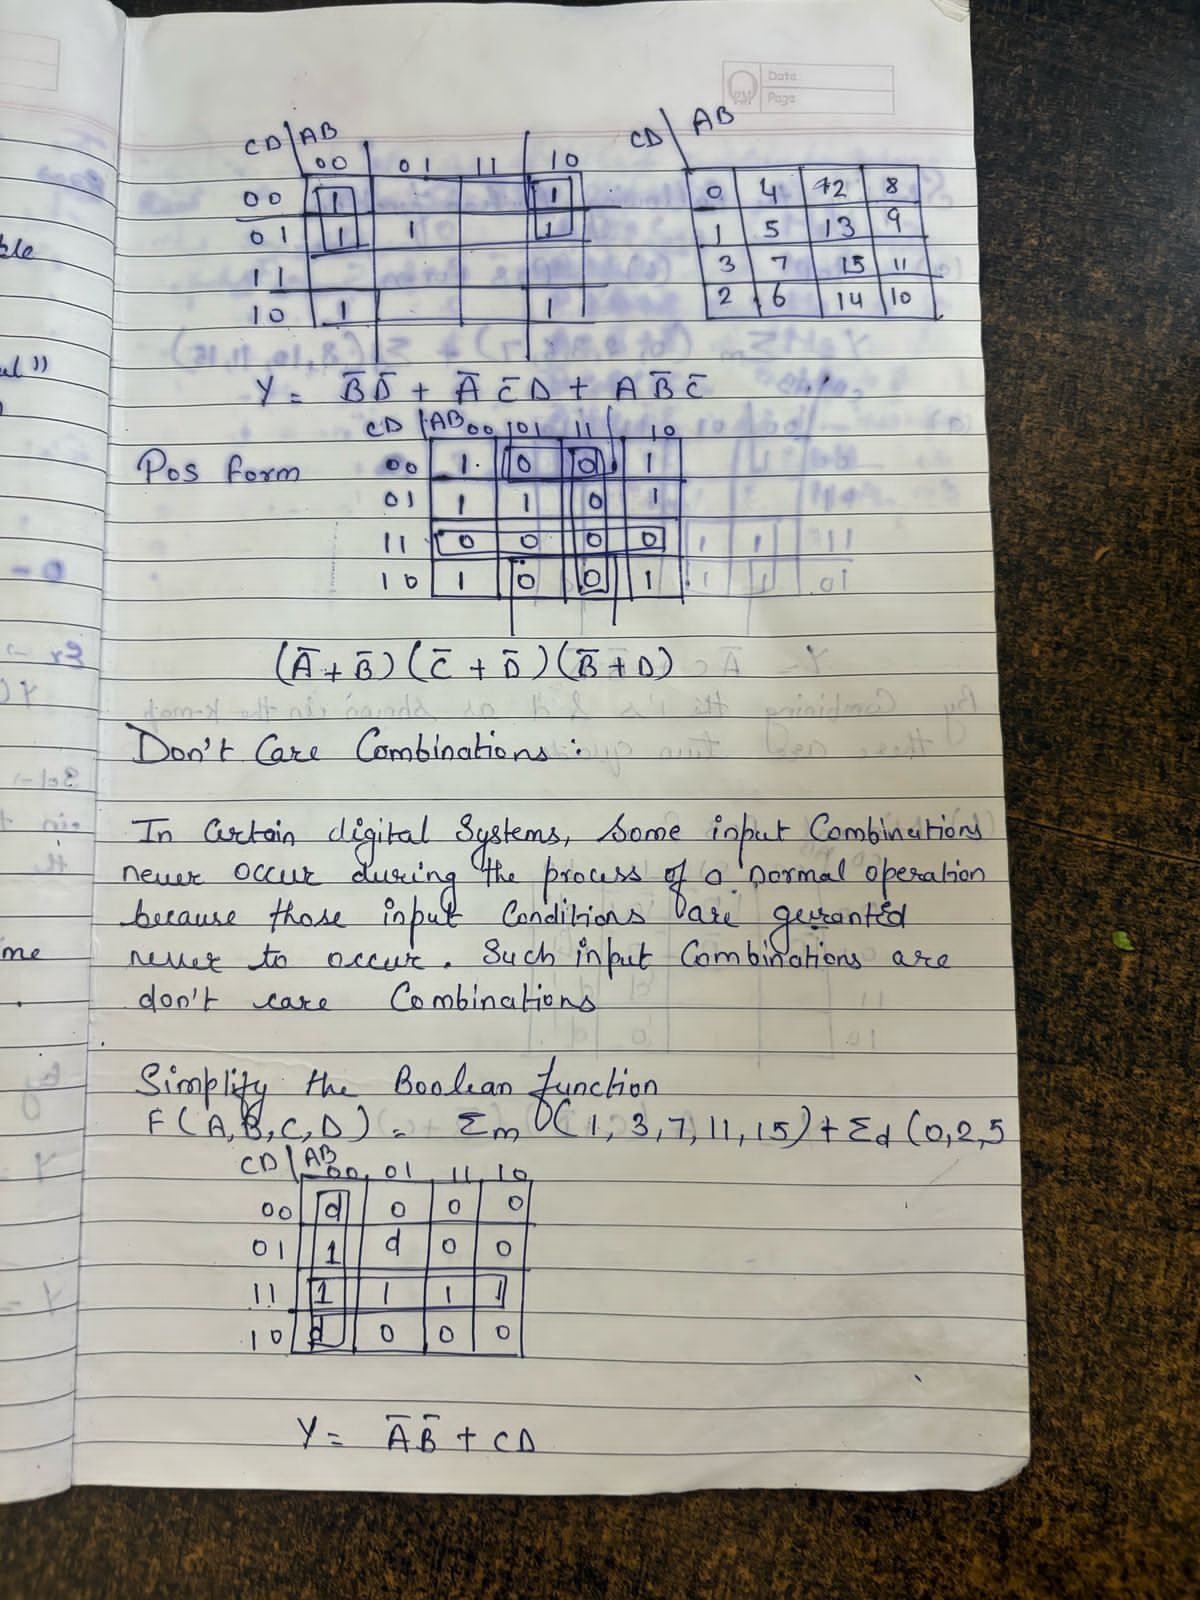 Date
Page
CD AB
00 01 11 10
00 1 1
01 1 1 1
11
10 1 1
CD AB
0 4 12 8
1 5 13 9
3 7 15 11
2 6 14 10
Y = B̅D̅ + A̅ C̅ D + A B̅ C̅
Pos form
CD AB 00 01 11 10
00 1 0 0 1
01 1 1 0 1
11 0 0 0 0
10 1 0 0 1
(A̅ + B̅) (C̅ + D̅) (B̅ + D)
Don't Care Combinations :
In Certain digital Systems, Some input Combinations
never occur during the process of a normal operation
because those input Conditions are geuranted
never to occur. Such input Combinations are
don't care Combinations
Simplify the Boolean function
F(A,B,C,D) = Σm (1, 3, 7, 11, 15) + Σd (0, 2, 5
CD AB
00 01 11 10
00 d 0 0 0
01 1 d 0 0
11 1 1 1 1
10 d 0 0 0
Y = A̅ B̅ + CD